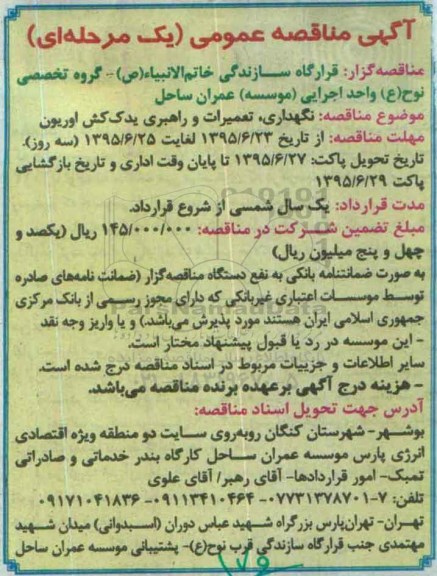 آگهی مناقصه عمومی (یک مرحله‌ای)
مناقصه‌گزار: قرارگاه سازندگی خاتم‌الانبیاء(ص)- گروه تخصصی
نوح(ع) واحد اجرایی (موسسه) عمران ساحل
موضوع مناقصه: نگهداری، تعمیرات و راهبری یدک‌کش اوریون
مهلت مناقصه: از تاریخ ۱۳۹۵/۶/۲۳ لغایت ۱۳۹۵/۶/۲۵ (سه روز).
تاریخ تحویل پاکت: ۱۳۹۵/۶/۲۷ تا پایان وقت اداری و تاریخ بازگشایی
پاکت ۱۳۹۵/۶/۲۹
مدت قرارداد: یک سال شمسی از شروع قرارداد.
مبلغ تضمین شرکت در مناقصه: ۱۴۵/۰۰۰/۰۰۰ ریال (یکصد و
چهل و پنج میلیون ریال)
به صورت ضمانتنامه بانکی به نفع دستگاه مناقصه‌گزار (ضمانت نامه‌های صادره
توسط موسسات اعتباری غیربانکی که دارای مجوز رسمی از بانک مرکزی
جمهوری اسلامی ایران هستند مورد پذیرش می‌باشد.) و یا واریز وجه نقد
- این موسسه در رد یا قبول پیشنهاد مختار است.
سایر اطلاعات و جزییات مربوط در اسناد مناقصه درج شده است.
- هزینه درج آگهی برعهده برنده مناقصه می‌باشد.
آدرس جهت تحویل اسناد مناقصه:
بوشهر- شهرستان کنگان روبه‌روی سایت دو منطقه ویژه اقتصادی
انرژی پارس موسسه عمران ساحل کارگاه بندر خدماتی و صادراتی
تمبک- امور قراردادها- آقای رهبر/ آقای علوی
تلفن: ۷-۰۷۷۳۱۳۷۸۷۰۱- ۰۹۱۱۳۴۱۰۴۶۴- ۰۹۱۷۱۰۴۱۸۳۶
تهران- تهران‌پارس بزرگراه شهید عباس دوران (اسبدوانی) میدان شهید
مهتمدی جنب قرارگاه سازندگی قرب نوح(ع)- پشتیبانی موسسه عمران ساحل